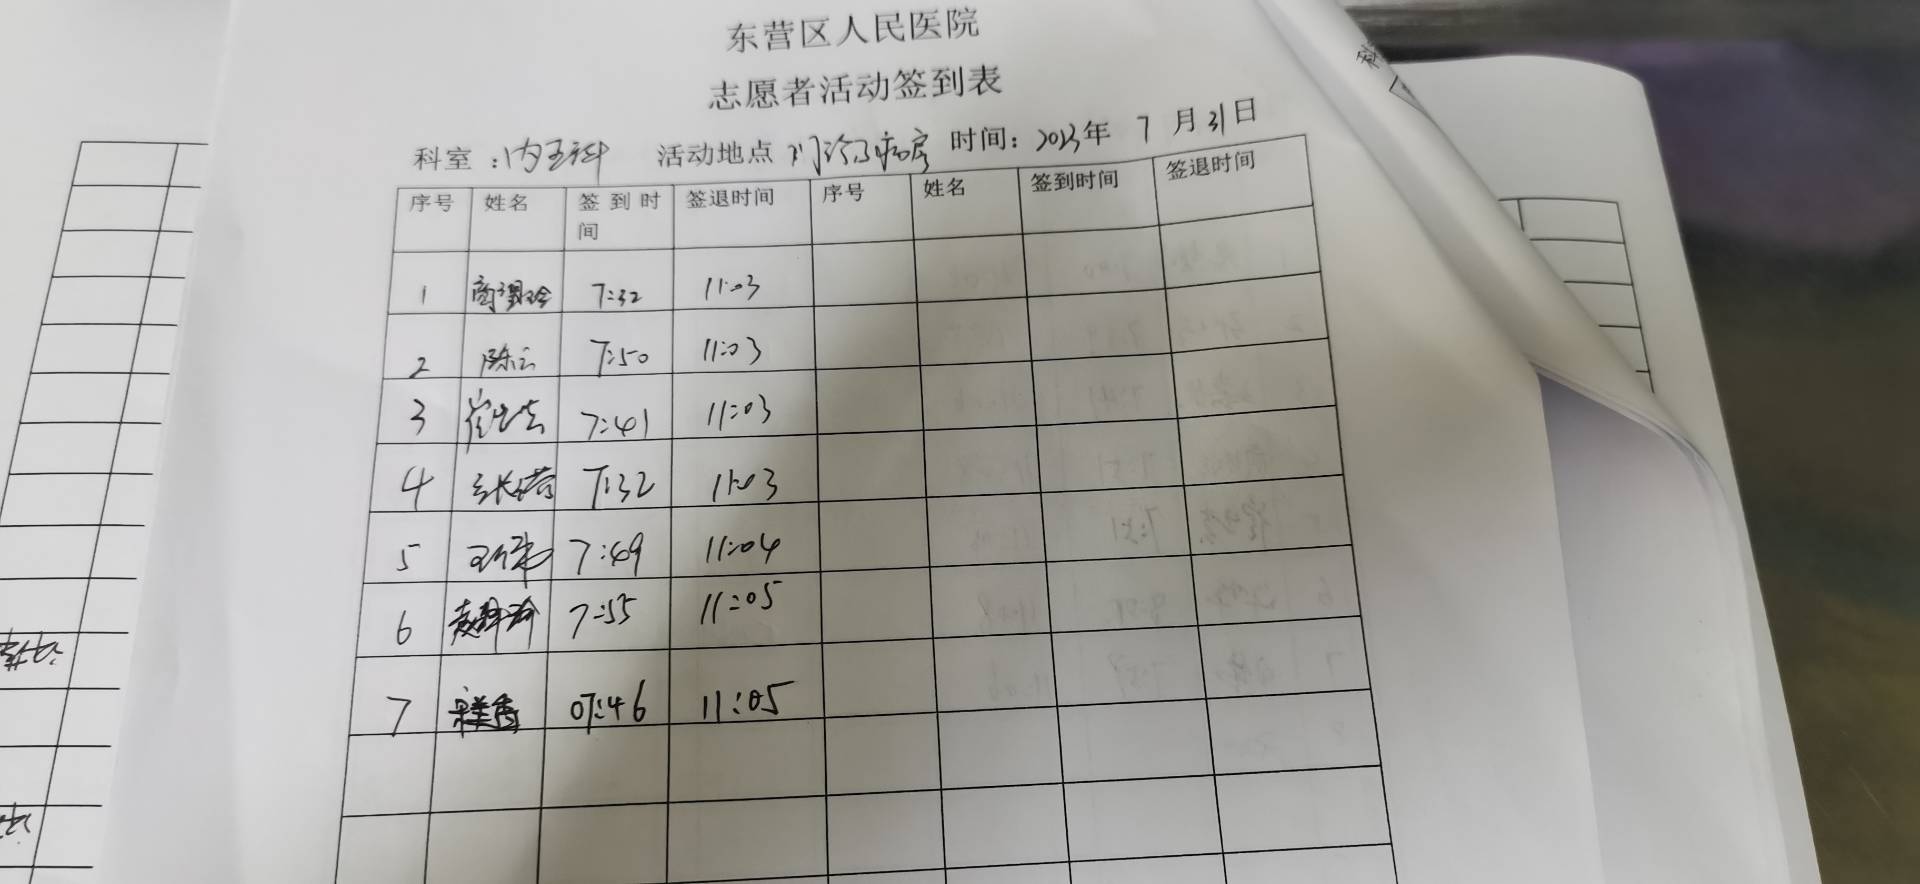 东营区人民医院
志愿者活动签到表
科室：内五科 活动地点 门诊及病房 时间：2023年 7 月31日
序号 姓名 签到时间 签退时间 序号 姓名 签到时间 签退时间
1 7:32 11:03
2 陈云 7:50 11:03
3 7:41 11:03
4 7:32 11:03
5 7:49 11:04
6 7:55 11:05
7 07:46 11:05